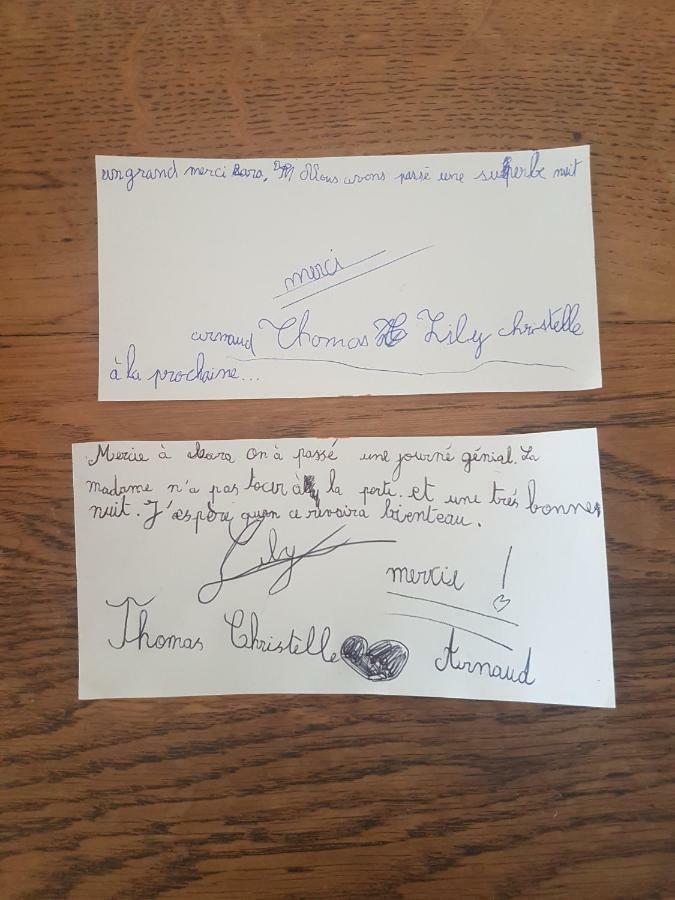 un grand merci Sara, Nous avons passé une superbe nuit
merci
arnaud Thomas Lily christelle
à la prochaine...
Mercie à Sara on à passé une journé génial. La
madame n'a pas tocur à la porte. et une trés bonnes
nuit. J'æspère quon ce revoira bienteau.
Lily
mercie !
Thomas Christelle Arnaud